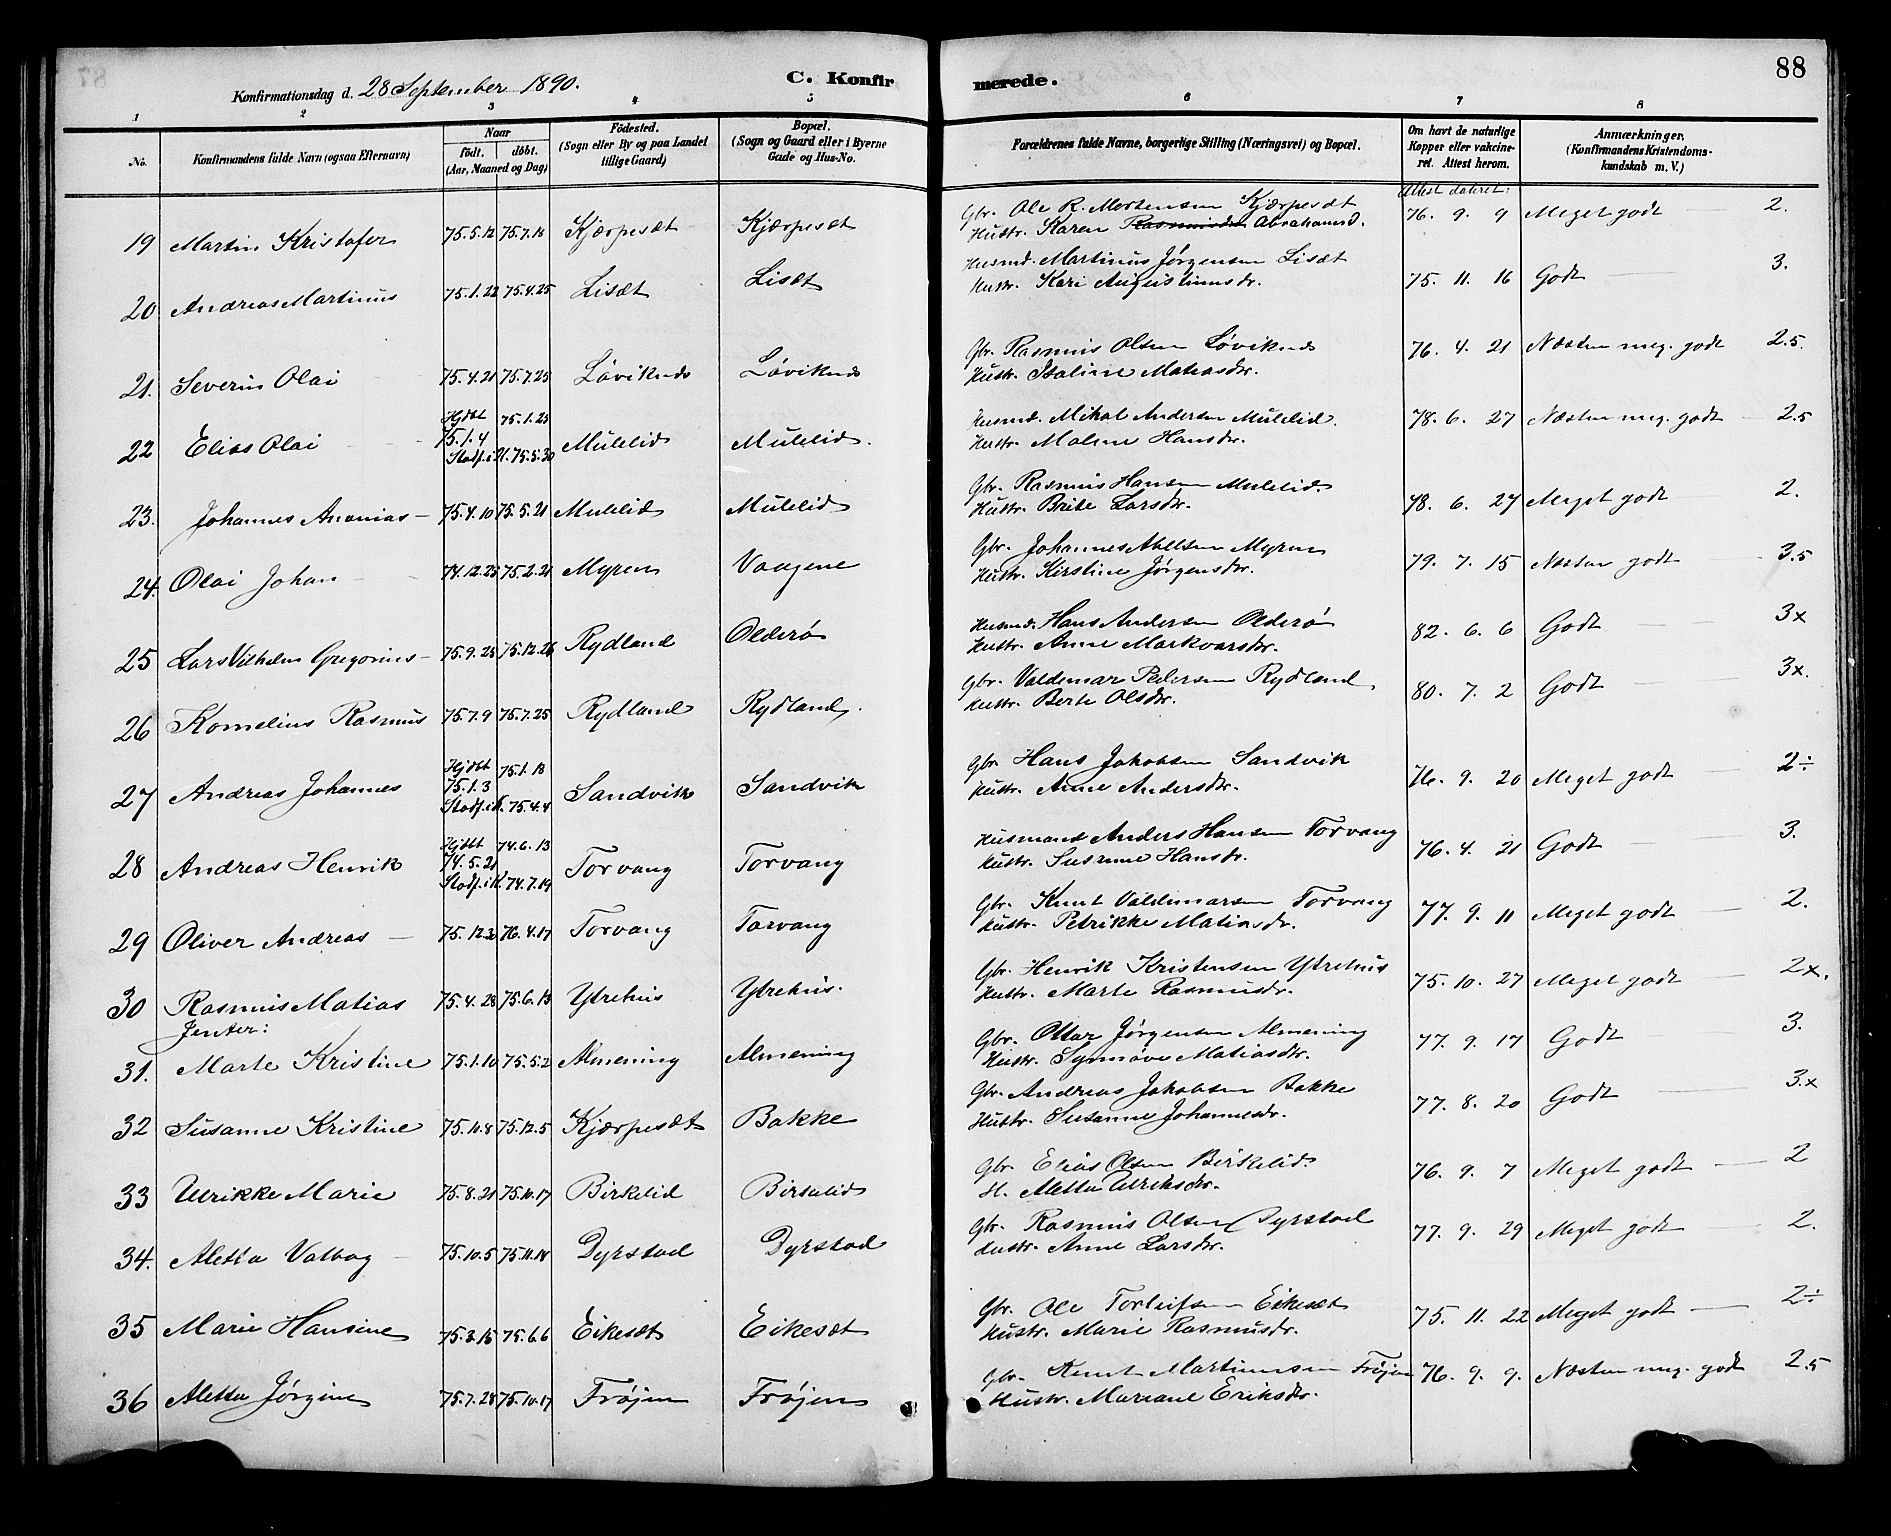 88
C. Konfirmerede.
Konfirmationsdag d. 28 September 1890.
1 2 3 4 5 6 7 8
No. Konfirmandens fulde Navn (ogsaa Efternavn) Naar født. døbt. (Aar, Maaned og Dag) Fødested. (Sogn eller By og paa Landet tillige Gaard) Bopæl. (Sogn og Gaard eller i Byerne Gade og Hus-No. Forældrenes fulde Navne, borgerlige Stilling (Næringsvei) og Bopæl. Om havt de naturlige Kopper eller vakcineret. Attest herom. Anmærkninger. (Konfirmandens Kristendomskundskab m. V.)
Attest dateret:
19 Martin Kristofer 75.5.12 75.7.18 Kjærpesæt Kjærpesæt Gbr. Ole R. Mortensen Kjærpesæt 76. 9. 9 Meget godt 2.
Hustr. Karen Rasmusdr. Abrahamsd.
20 Andreas Martinus 75.1.22 75.4.25 Lisæt Lisæt Husmd. Martinus Jørgensen Lisæt 75. 11. 16 Godt 3.
Hustr. Kari Augustinusdr.
21. Severin Olai 75.4.21 75.7.25 Løviknes Løviknes Gbr. Rasmus Olsen Løviknes 76. 4. 21 Næsten meg. godt 2.5.
Hustr. Staline Matiasdr.
22 Elias Olai Hjdbt 75.1.4 75.1.25 Stadf. i K. 75.5.30 Mulelid Mulelid. Husmd. Mikal Andersen Mulelid. 78. 6. 27 Næsten meg. godt 2.5
Hustr. Malene Hansdr.
23. Johannes Ananias 75.4.10 75.5.21 Mulelid Mulelid Gbr. Rasmus Hansen Mulelid. 78. 6. 27 Meget godt 2.
Hustr. Brite Larsdr.
24. Olai Johan 74.12.25 75.2.21 Myren Vaagene Gbr. Johannes Abelsen Myren 79. 7. 15 Næsten godt 3.5
Hustr. Kirstine Jørgensdr.
25 Lars Vilhelm Gregorius 75.9.25 75.12.26 Rydland Olderø Husmd. Hans Andersen Olderø 82. 6. 6 Godt 3x
Hustr. Anne Markvarsdr.
26 Kornelius Rasmus 75.7.9 75.7.25 Rydland Rydland. Gbr. Valdemar Pedersen Rydland, 80. 7. 2 Godt 3x.
Hustr. Berte Olsdr.
27 Andreas Johannes Hjdbt 75.1.3 75.1.18 Stadf. i K. 75.4.4 Sandvik Sandvik Gbr Hans Jakobsen Sandvik 76. 9. 20 Meget godt 2÷
Hustr. Anne Andersdr.
28 Andreas Henrik Hjdbt 74.5.21 74.6.13 Stadf. i K. 74.7.19 Torvang Torvang Husmand Anders Hansen Torvang 76. 4. 21 Godt 3.
Hustr. Susanne Hansdr.
29 Oliver Andreas 75.12.30 76.4.17 Torvang Torvang Gbr. Knut Valdemarsen Torvang 77. 9. 11 Meget godt 2.
Hustr. Petrikke Matiasdr.
30 Rasmus Matias 75.4.28 75.6.13 Ytrehus Ytrehus. Gbr. Henrik Kristensen Ytrehus 75. 10. 27 Meget godt 2x.
Hustr. Marte Rasmusdr.
Jenter:
31. Marte Kristine 75.1.10 75.5.2 Almening Almening Gbr. Ottar Jørgensen Almening 77. 9. 17 Godt 3.
Hustr. Synnøve Matiasdr.
32 Susanne Kristine 75.10.8 75.12.5 Kjærpesæt Bakke Gbr. Andreas Jakobsen Bakke 77. 8. 20 Godt 3.x
Hustr. Susanne Johannesdr.
33 Ulrikke Marie 75.8.21 75.10.17 Birkelid Birkelid Gbr. Elias Olsen Birkelid. 76. 9. 7 Meget godt 2
H. Aletta Ulriksdr.
34. Aletta Valbog 75.10.5 75.11.14 Dyrstad Dyrstad Gbr. Rasmus Olsen Dyrstad 77. 9. 29 Meget godt 2.
Hustr. Anne Larsdr.
35 Marie Hansine 75.3.15 75.6.6 Eikesæt Eikesæt Gbr. Ole Torleifsen Eikesæt 75. 11. 22 Meget godt 2÷
Hustr. Marie Rasmusdr.
36 Aletta Jørgine 75.7.28 75.10.17 Frøjen Frøjen Gbr. Knut Martinussen Frøjen 76. 9. 9. Næsten meg. godt 2.5
Hustr. Mariane Eriksdr.